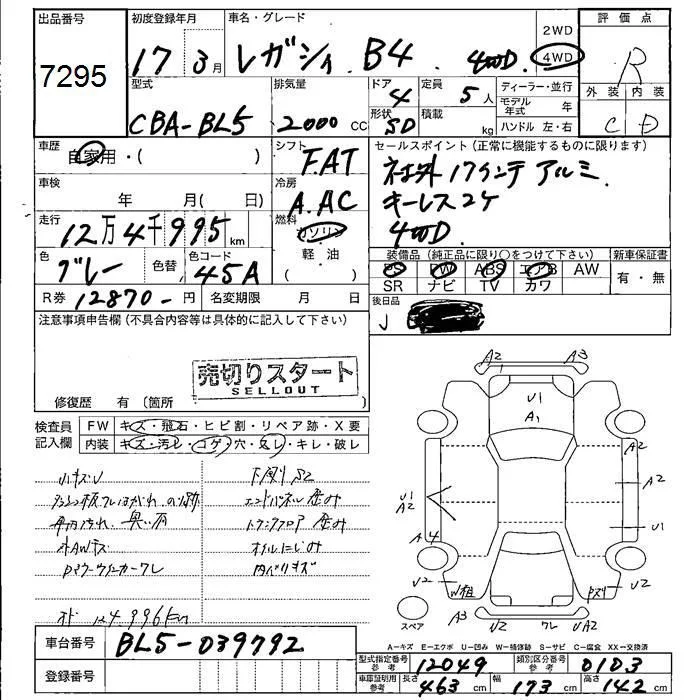 出品番号 初度登録年月 車名・グレード 評価点
7295 17 3月 レガシィ B4 4WD 2WD 4WD R
型式 排気量 ドア 定員 ディーラー・並行 外装 内装
CBA-BL5 2000CC 4 5人 モデル年式 年 C D
形状 5D 積載 kg ハンドル 左・右
車歴 自家用・( ) シフト F.AT セールスポイント(正常に機能するものに限ります)
車検 年 月( 日) 冷房 A.AC 17インチ アルミ
キーレス2ケ
走行 12万4千995km 燃料 ガソリン 4WD
軽・油 装備品(純正品に限り○をつけて下さい) 新車保証書
色 グレー 色替 色コード 45A PS PW ABS エアB AW 有・無
SR ナビ TV カワ
R券 12870-円 名変期限 月 日 後日品
注意事項申告欄(不具合内容等は具体的に記入して下さい) J
売切りスタート
SELLOUT
修復歴 有(箇所
検査員記入欄 FW キズ・飛石・ヒビ割・リペア跡・X要
内装 キズ・汚レ・コゲ・穴・スレ・キレ・破レ
小キズU 下廻りS2
エンドパネル歪み
トランクフロア歪み
オイルにじみ
内ベリキズ
124.996km
A2 A3
U1
A1
A2
A2
U1
A2
U1
A4
U2 U2
A3 U2 ワレ UA2
スペア
A-キズ E-エクボ U-凹み W-補修跡 S-サビ C-腐食 XX-交換済
車台番号 BL5-039792 型式指定番号 参考 12049 類別区分番号 参考 0103
登録番号 車庫証明用 参考 長さ 463cm 幅 173cm 高さ 142cm